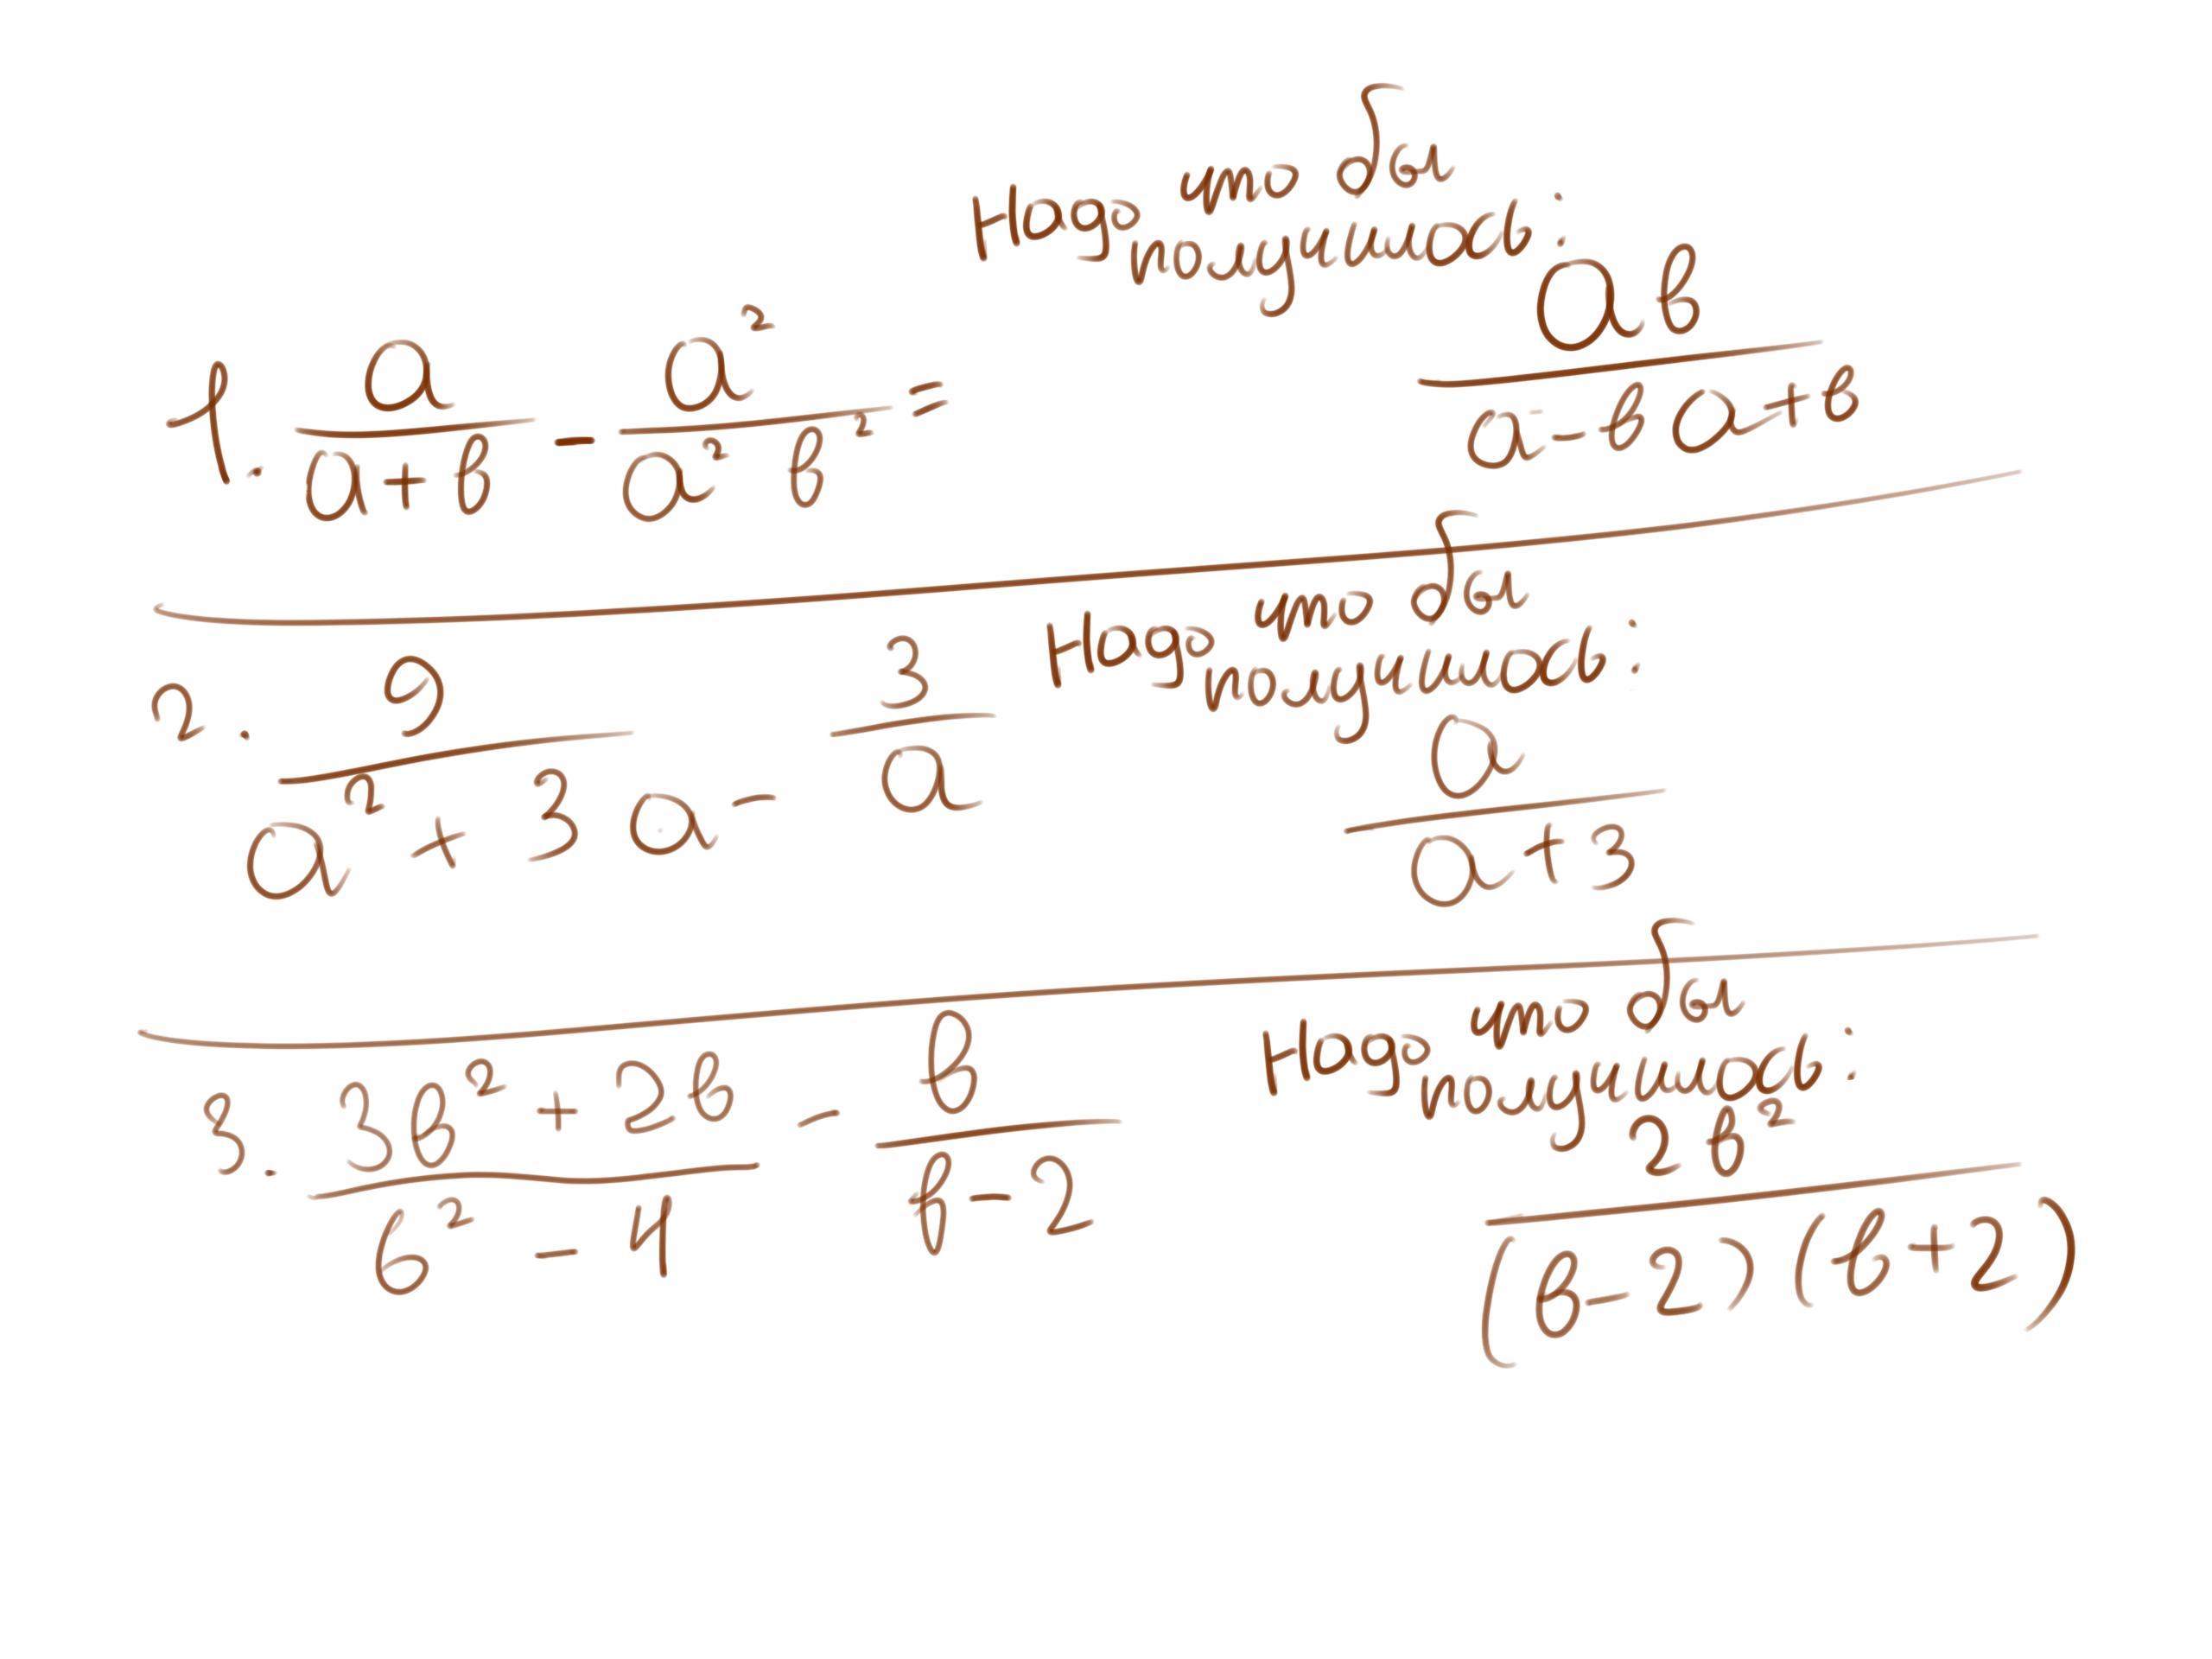 Надо что бы
получилось:
1. a/(a+в) - a²/(a² в²) = aв/(a-в a+в)
Надо что бы
получилось:
2. 9/(a²+3a) - 3/a a/(a+3)
Надо что бы
получилось:
3. (3в²+2в)/(в²-4) - в/(в-2) 2в²/((в-2)(в+2))